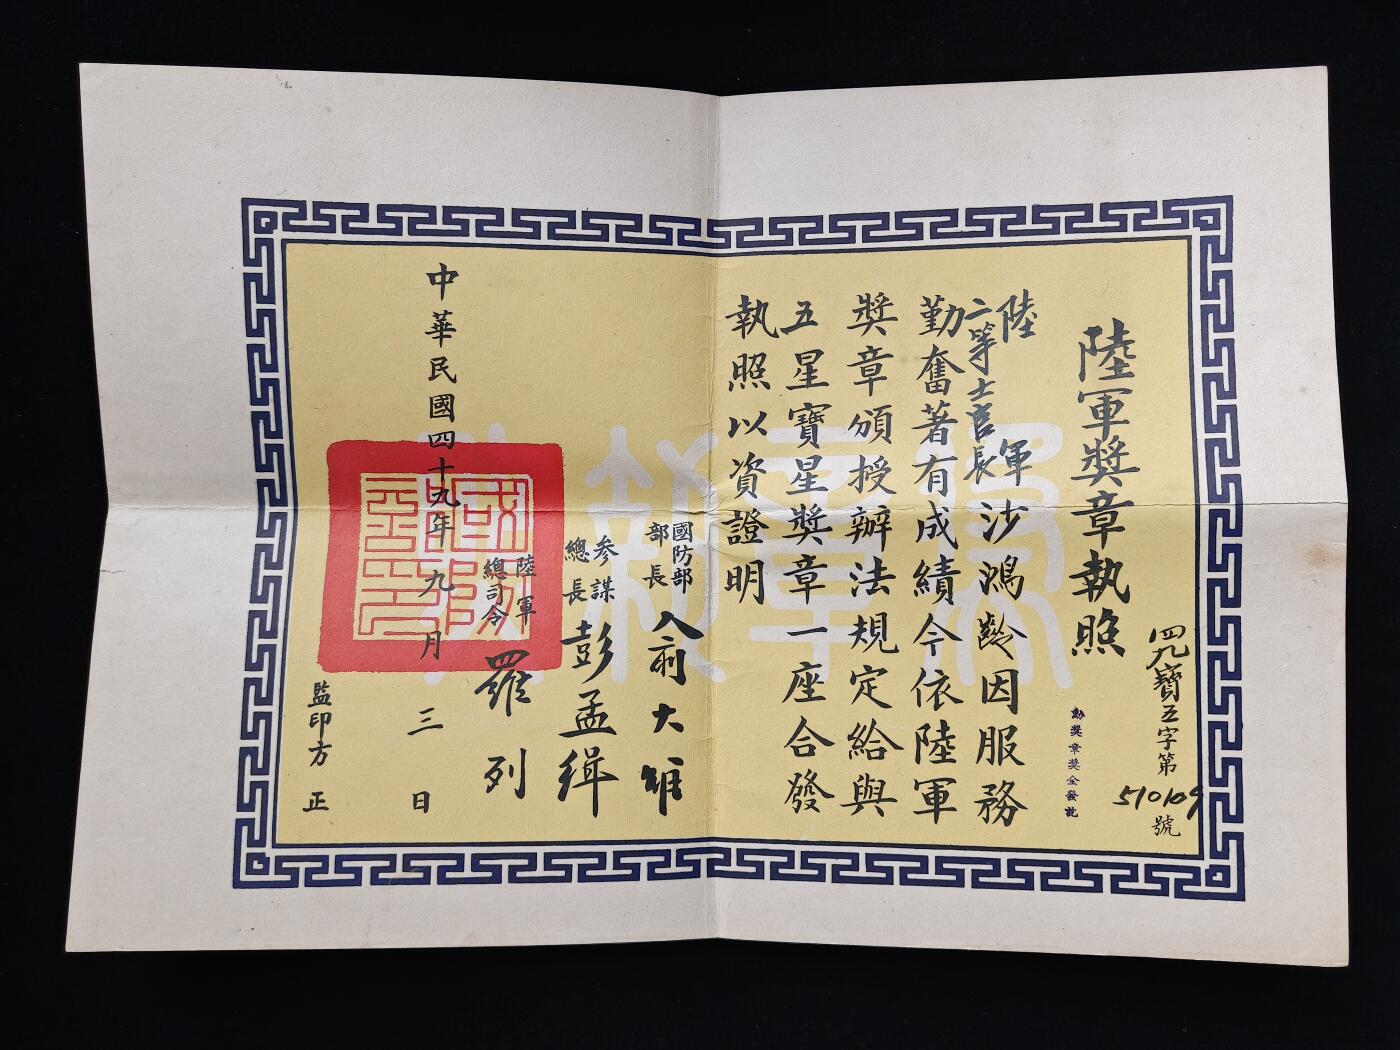 陸軍獎章執照
四九寶五字第
510109
號
勳獎章獎金發訖
陸軍
二等士官長
沙鴻齡因服務
勤奮著有成績今依陸軍
獎章頒授辦法規定給與
五星寶星獎章一座合發
執照以資證明
國防部
部長
俞大維
參謀
總長
彭孟緝
陸軍
總司令
羅列
中華民國四十九年九月三日
監印方正